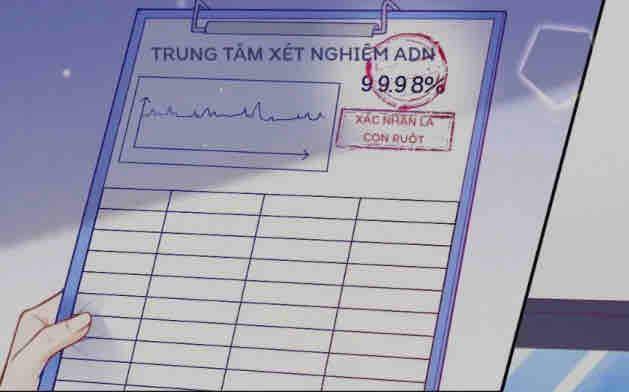 TRUNG TÂM XÉT NGHIỆM ADN
99.98%
XÁC NHẬN LÀ
CON RUỘT